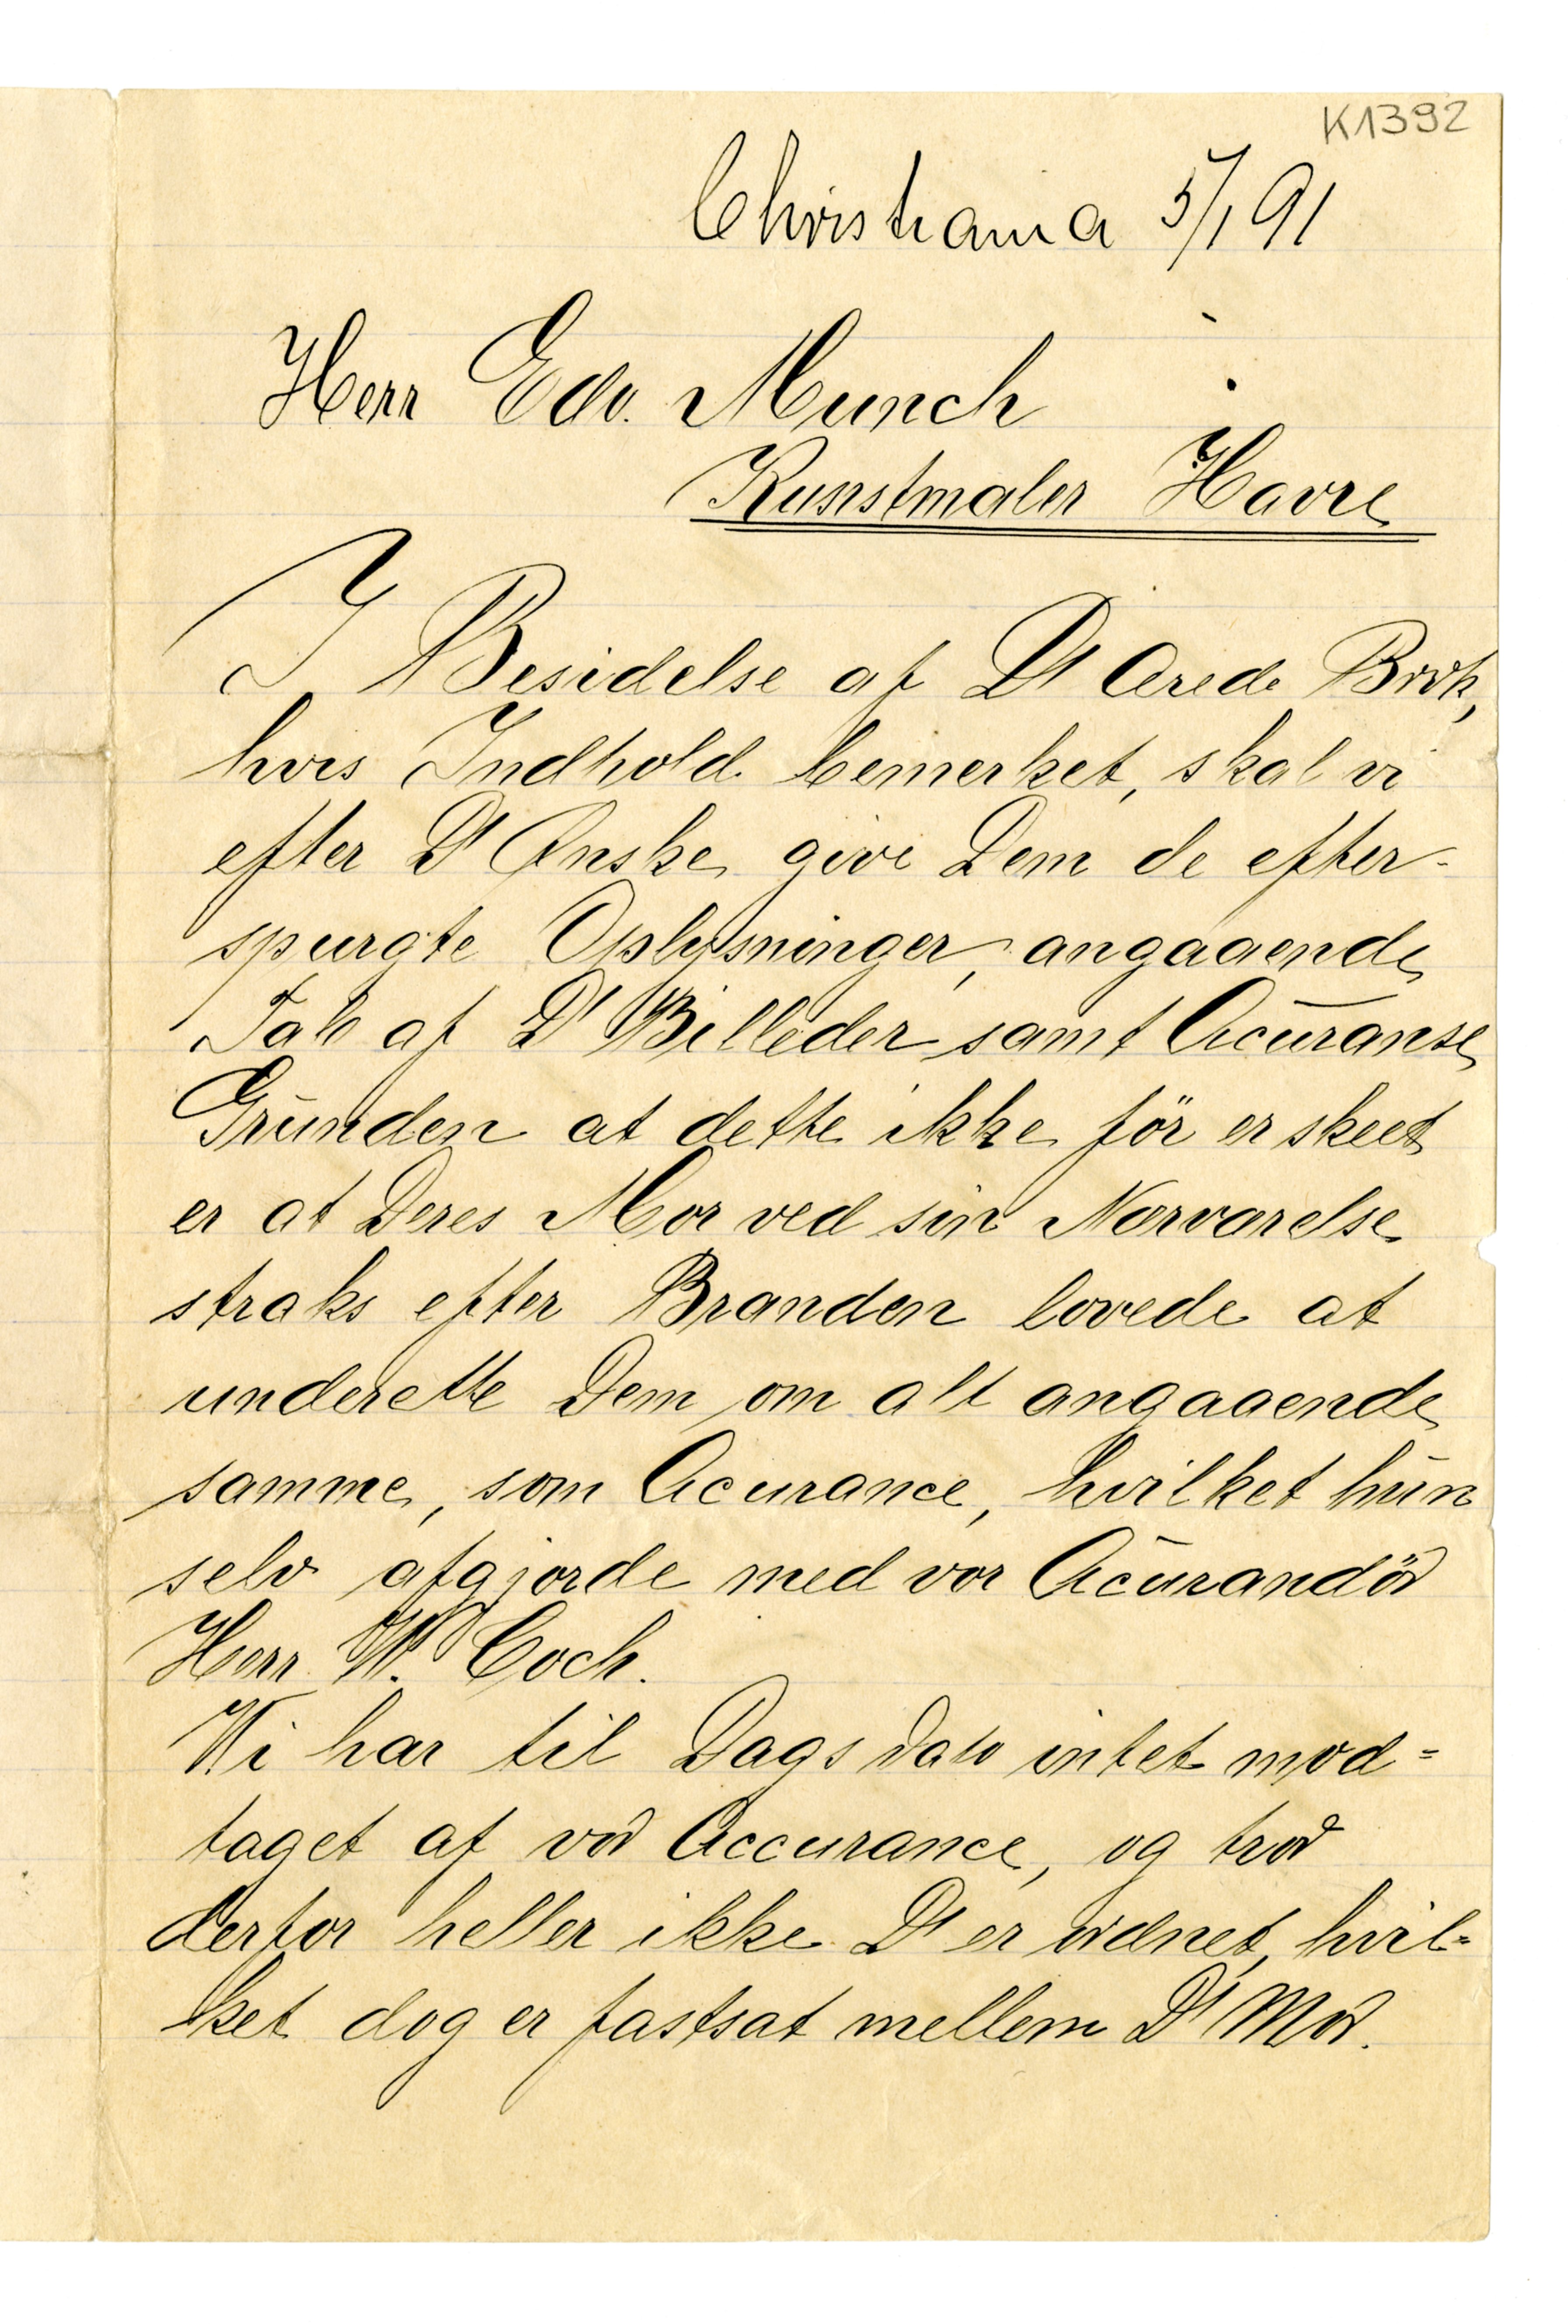 K1392
Christiania 5/1 91
Herr Edv. Munch
Kunstmaler Havre
I Besidelse af Dt Ærede Brvk,
hvis Indhold bemerket, skal vi
efter Dt Ønske give Dem de efter-
spurgte Oplysninger, angaaende
Tab af Dt Billeder samt Acuranse
Grunden at dette ikke för er skeet
er at Deres Mor ved sin Nærværelse
straks efter Branden lovede at
underette Dem om alt angaaende
samme, som Acurance, hvilket hun
selv afgjorde med vor Acurandör
Herr W. Coch.
Vi har til Dags dato intet mod=
taget af vor Accurance, og tror
derfor heller ikke Dt er ordnet, hvil=
ket dog er fastsat mellem Dt Mor.